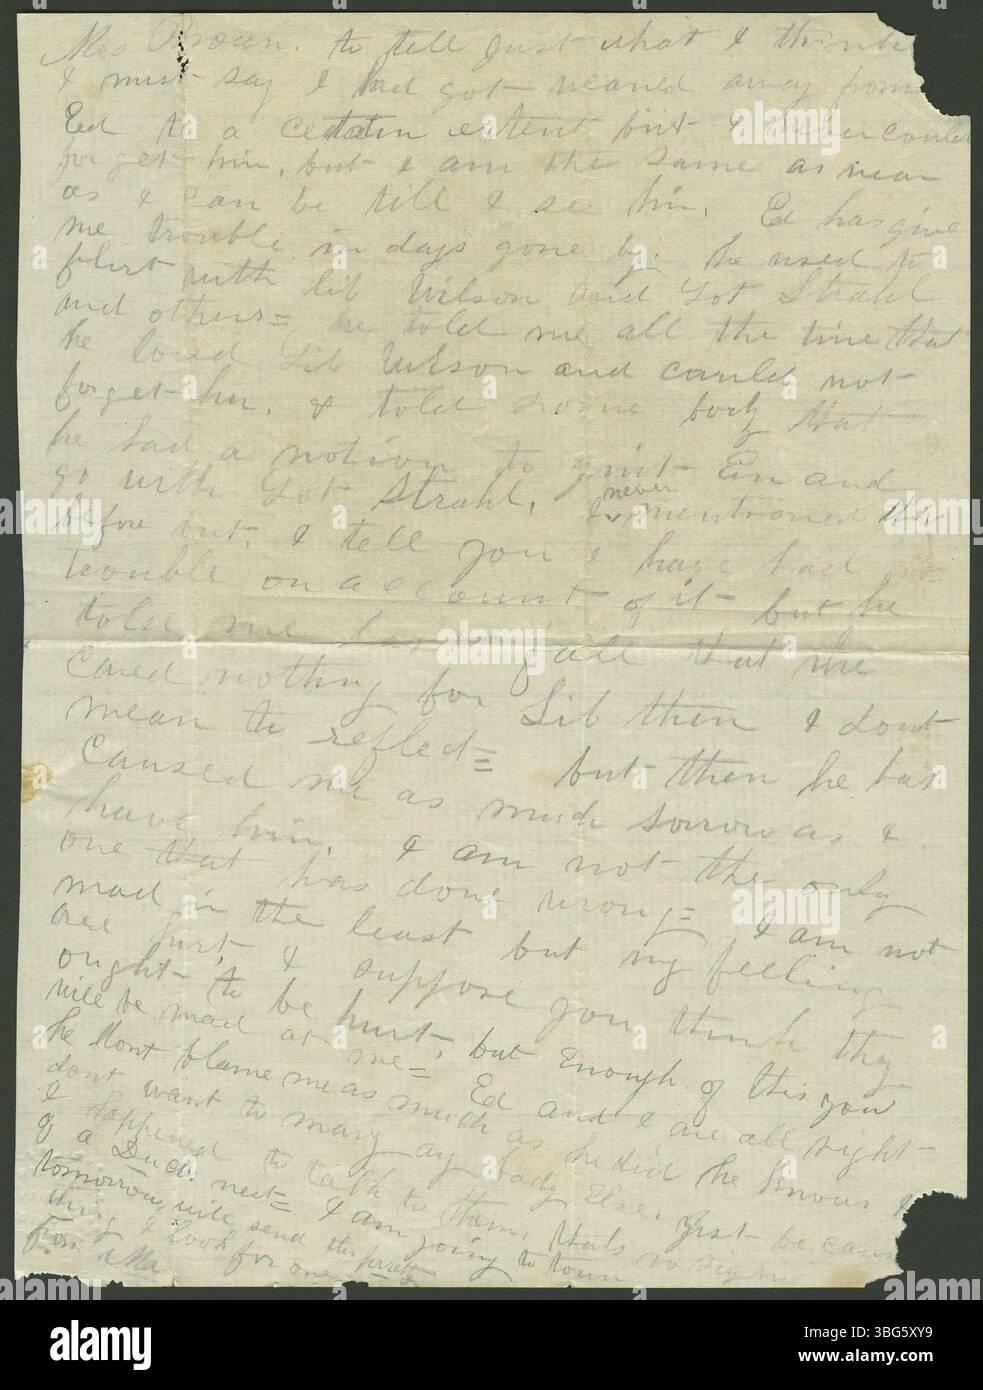 Mrs Brown. to tell just what I think
I must say I had got weaned away from
Ed to a certain extent but I never could
forget him, but I am the same as near
as I can be till I see him. Ed has give
me trouble in days gone by. he used to
flirt with Lib Wilson and Lot Strahl
and others= he told me all the time that
he loved Lib Wilson and could not
forget her, & told some body that
he had a notion to quit Em and
go with Lot Strahl, I never mentioned this
before but, I tell you I have had
trouble on account of it- but he
told me last fall that he
cared nothing for Lib then I dont
mean to reflect= but then he has
caused me as much sorrow as I
have him. I am not the only
one that has done wrong= I am not
mad in the least but my feelings
are hurt, I suppose you think they
ought- to be hurt, but Enough of this, you
will be mad at me= Ed and I are all right-
he dont blame me as much as he did he knows I
dont want to marry any body Else, just because
I happened to talk to them, thats no sign
of a Duck nest= I am going to town
tomorrow, will send this
this I look for one
From
alamy
Image ID: 3BG5XY9
www.alamy.com